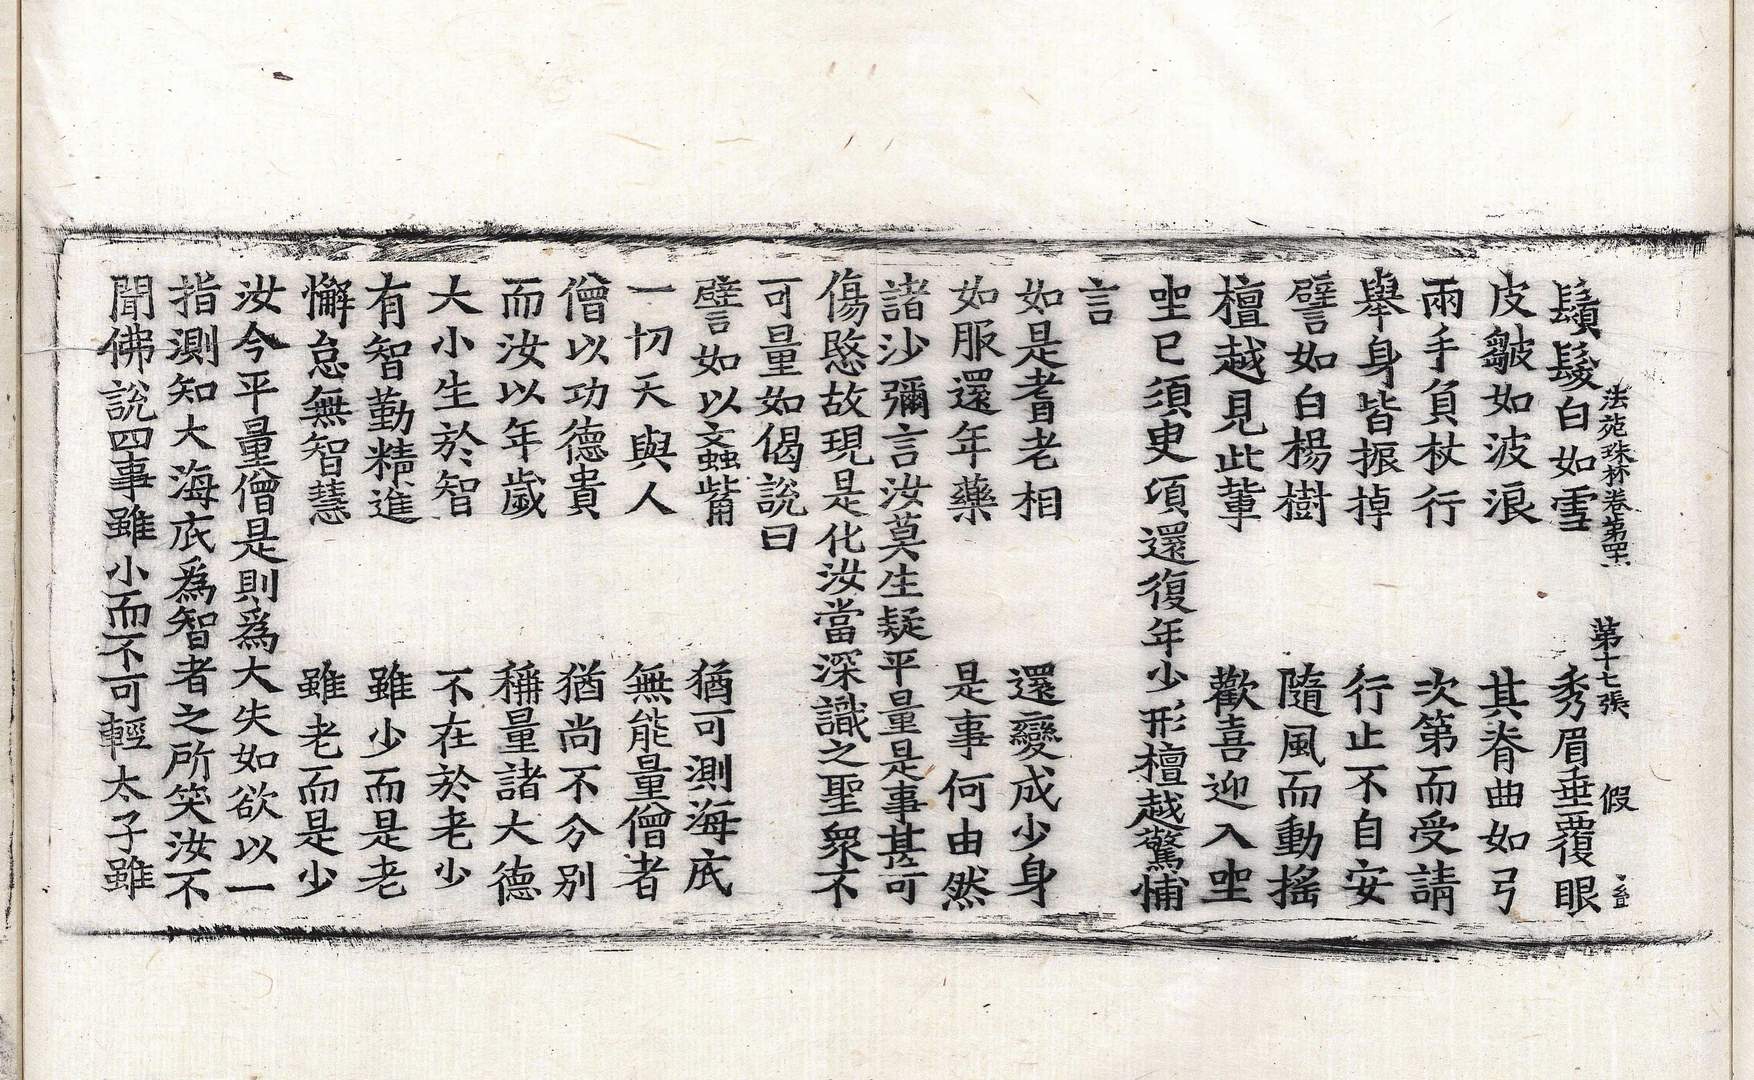 法苑珠林卷第四十六 第十七張 假
鬚髮白如雪 秀眉垂覆眼
皮皺如波浪 其脊曲如弓
兩手負杖行 次第而受請
舉身皆振掉 行止不自安
譬如白楊樹 隨風而動搖
檀越見此輩 歡喜迎入坐
坐已須臾頃還復年少形檀越驚怖
言
如是耆老相 還變成少身
如服還年藥 是事何由然
諸沙彌言汝莫生疑平量是事甚可
傷愍故現是化汝當深識之聖衆不
可量如偈說曰
譬如以蚊觜 猶可測海底
一切天與人 無能量僧者
僧以功德貴 猶尚不分別
而汝以年歲 稱量諸大德
大小生於智 不在於老少
有智勤精進 雖少而是老
懈怠無智慧 雖老而是少
汝今平量僧是則爲大失如欲以一
指測知大海底爲智者之所笑汝不
聞佛說四事雖小而不可輕太子雖